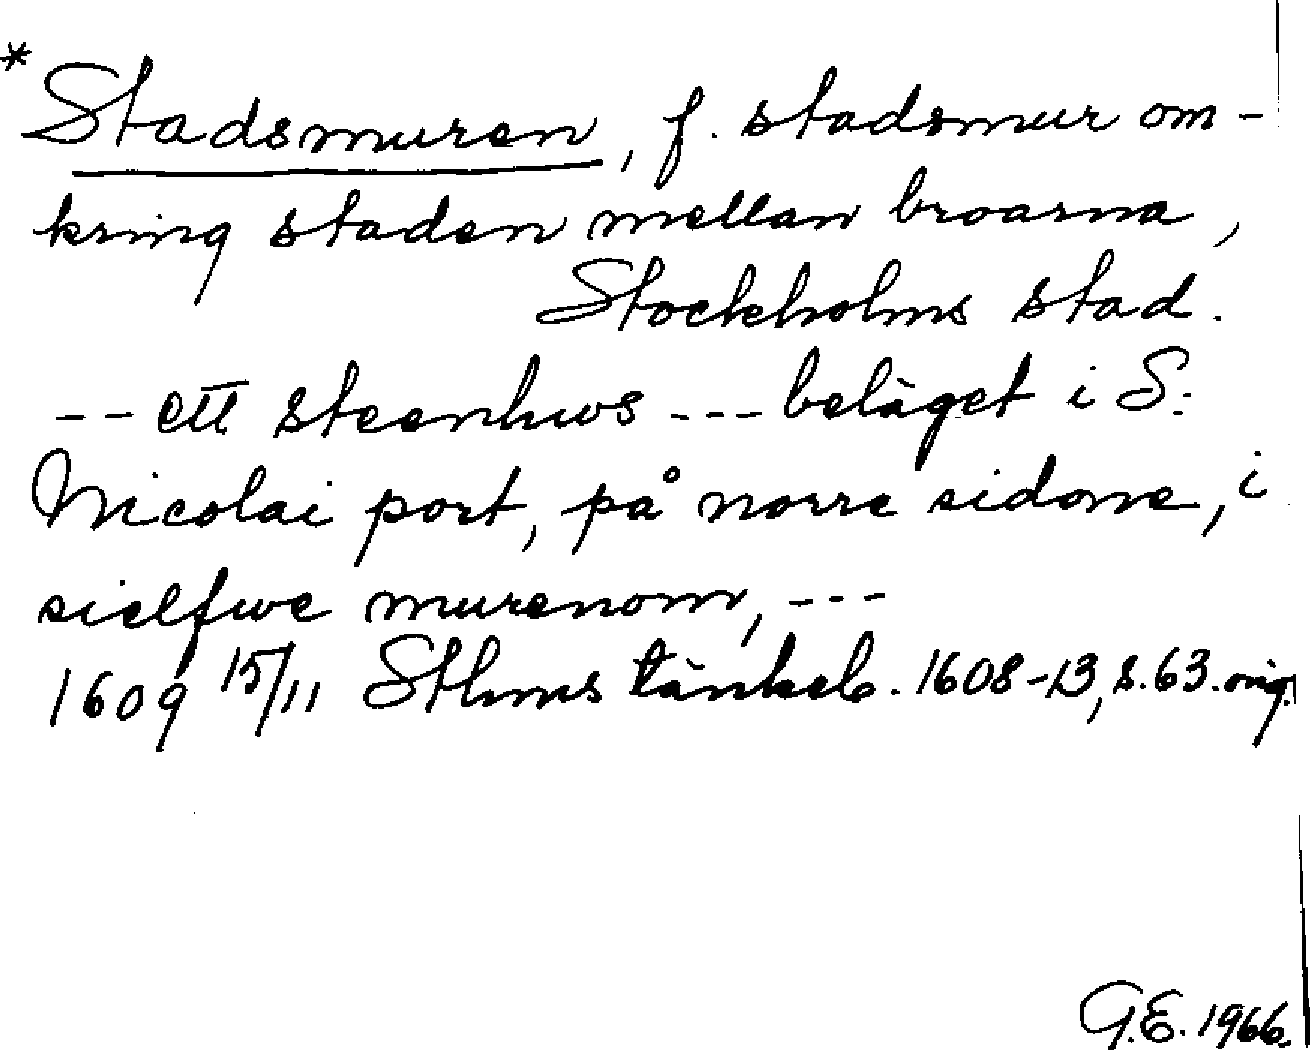 * Stadsmuren, f. stadsmur om-
kring staden mellan broarna,
Stockholms stad.
-- ett steenhws --- beläget i S:
Nicolai port, på norre sidone, i
sielfwe murenom, ---
1609 15/11 Sthms tänkeb. 1608-13, s.63. orig.
G.E. 1966.